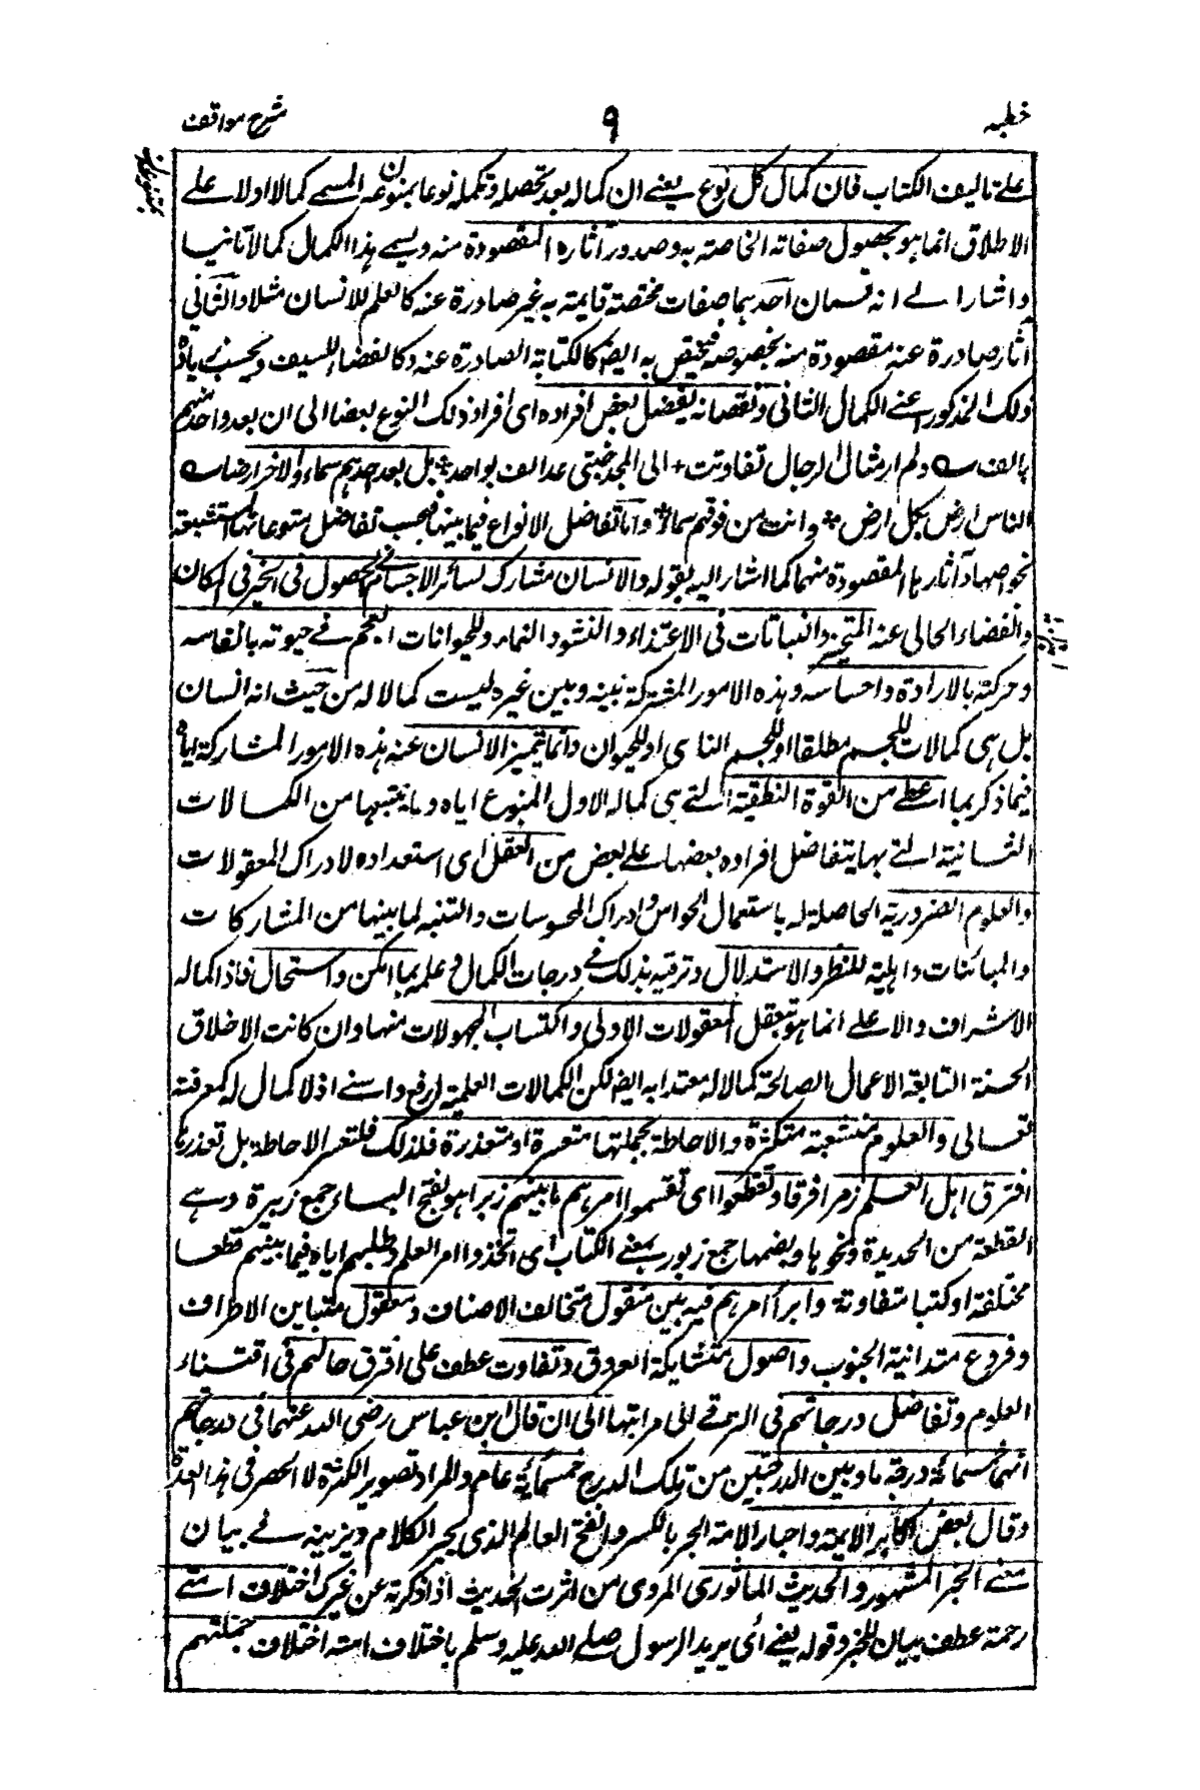 خطبه ٩ شرح مواقف
على تاليف الكتاب فان كمال كل نوع يعنى ان كماله بعد تحصله وتكمله نوعا بمنوعه المسمى كمالا اولا على
الاطلاق انما هو بحصول صفاته الخاصة به وصدور آثاره المقصودة منه ويسمى هذا الكمال كمالا ثانيا
واشار الى انه قسمان احدهما صفات مختصة قايمة به غير صادرة عنه كالعلم للانسان مثلا والثانى
آثار صادرة عنه مقصودة منه بخصوصه فيختص به ايضا كالكتابة الصادرة عنه وكالمضاء للسيف وبحسب زيادة
ذلك المذكور اعنى الكمال الثانى ونقصانه يفضل بعض افراده اى افراد ذلك النوع بعضا الى ان يعد واحد منهم
بالف ولم ار مثال الرجال تفاوتت + الى المجد حتى عد الف بواحد بل يعد احدهم سماء والاخر ارضا
الناس ارض بكل ارض وانت من فوقهم سماء واما تفاضل الانواع فيما بينها فبحسب تفاضل منوعاتها المستتبعة
لخواصها وآثارها المقصودة منها كما اشار اليه بقوله والانسان مشارك لسائر الاجسام فى الحصول فى الحيز فى المكان
والفضاء الخالى عند المتحيز والنباتات فى الاغتذاء والنشو والنماء وللحيوانات العجم فى حيوته بانفاسه
وحركته بالارادة واحساسه وهذه الامور المشتركة بينه وبين غيره ليست كمالا له من حيث انه انسان
بل هى كمالات للجسم مطلقا او للجسم النامى او للحيوان وانما يتميز الانسان عنه هذه الامور المشاركة اياه
فيما ذكر بما اعطى من القوة النطقية التى هى كماله الاول المنوع اياه وما يتبعها من الكمالات
النفسانية التى بها يتفاضل افراده بعضها على بعض من العقل اى استعداده لادراك المعقولات
والعلوم الضرورية الحاصلة له باستعمال الحواس وادراك المحسوسات والتنبه لما بينها من المشاركات
والمباينات واهلية للنظر والاستدلال وترقيه بذلك فى درجات الكمال وعلمه بما امكن واستحال فاذا كماله
الاشرف والاعلى انما هو بتعقل المعقولات الاولى واكتساب المجهولات منها وان كانت الاخلاق
الحسنة التابعة الاعمال الصالحة كمالا له معتدا به ايضا لكن الكمالات العلمية ارفع واسنى اذ لا كمال له كمعرفته
تعالى والعلوم متشعبة متكثرة والاحاطة بجملتها متعسرة او متعذرة فلذلك فلتعسر الاحاطة بل تعذرها
افترق اهل العلم زمرا فرقا وتقطعوا اى تقسموا امرهم ما بينهم زبرا هو بفتح الباء جمع زبرة وهى
القطعة من الحديدة ونحوها وبضمها جمع زبور بمعنى الكتاب اى اتخذوا امر العلم وطلبهم اياه فيما بينهم قطعا
مختلفة او كتبا متفاوتة وابراء امرهم فيه بين منقول متخالف الاصناف ومعقول متباين الاطراف
وفروع متدانية الجنوب واصول متشابكة العروق وتفاوت عطف على افترق حالهم فى اقتناء
العلوم وتفاضل درجاتهم فى الترقى الى مراتبها الى ان قال ابن عباس رضى الله عنهما فى درجاتهم
انها خمسمائة درجة ما بين الدرجتين من تلك الدرج خمسمائة عام والمراد تصوير الكثرة لا الحصر فى هذا العدد
وقال بعض اكابر الايمة واحبار الامة الحبر بالكسر والفتح العالم الذى يحبر الكلام ويزينه فى بيان
معنى الخبر المشهور والحديث الماثورى المروى من اثرت الحديث اذا ذكرته عن غيرك اختلاف امتى
رحمة عطف بيان للخبر وقوله يعنى اى يريد الرسول صلى الله عليه وسلم باختلاف امته اختلاف هممهم